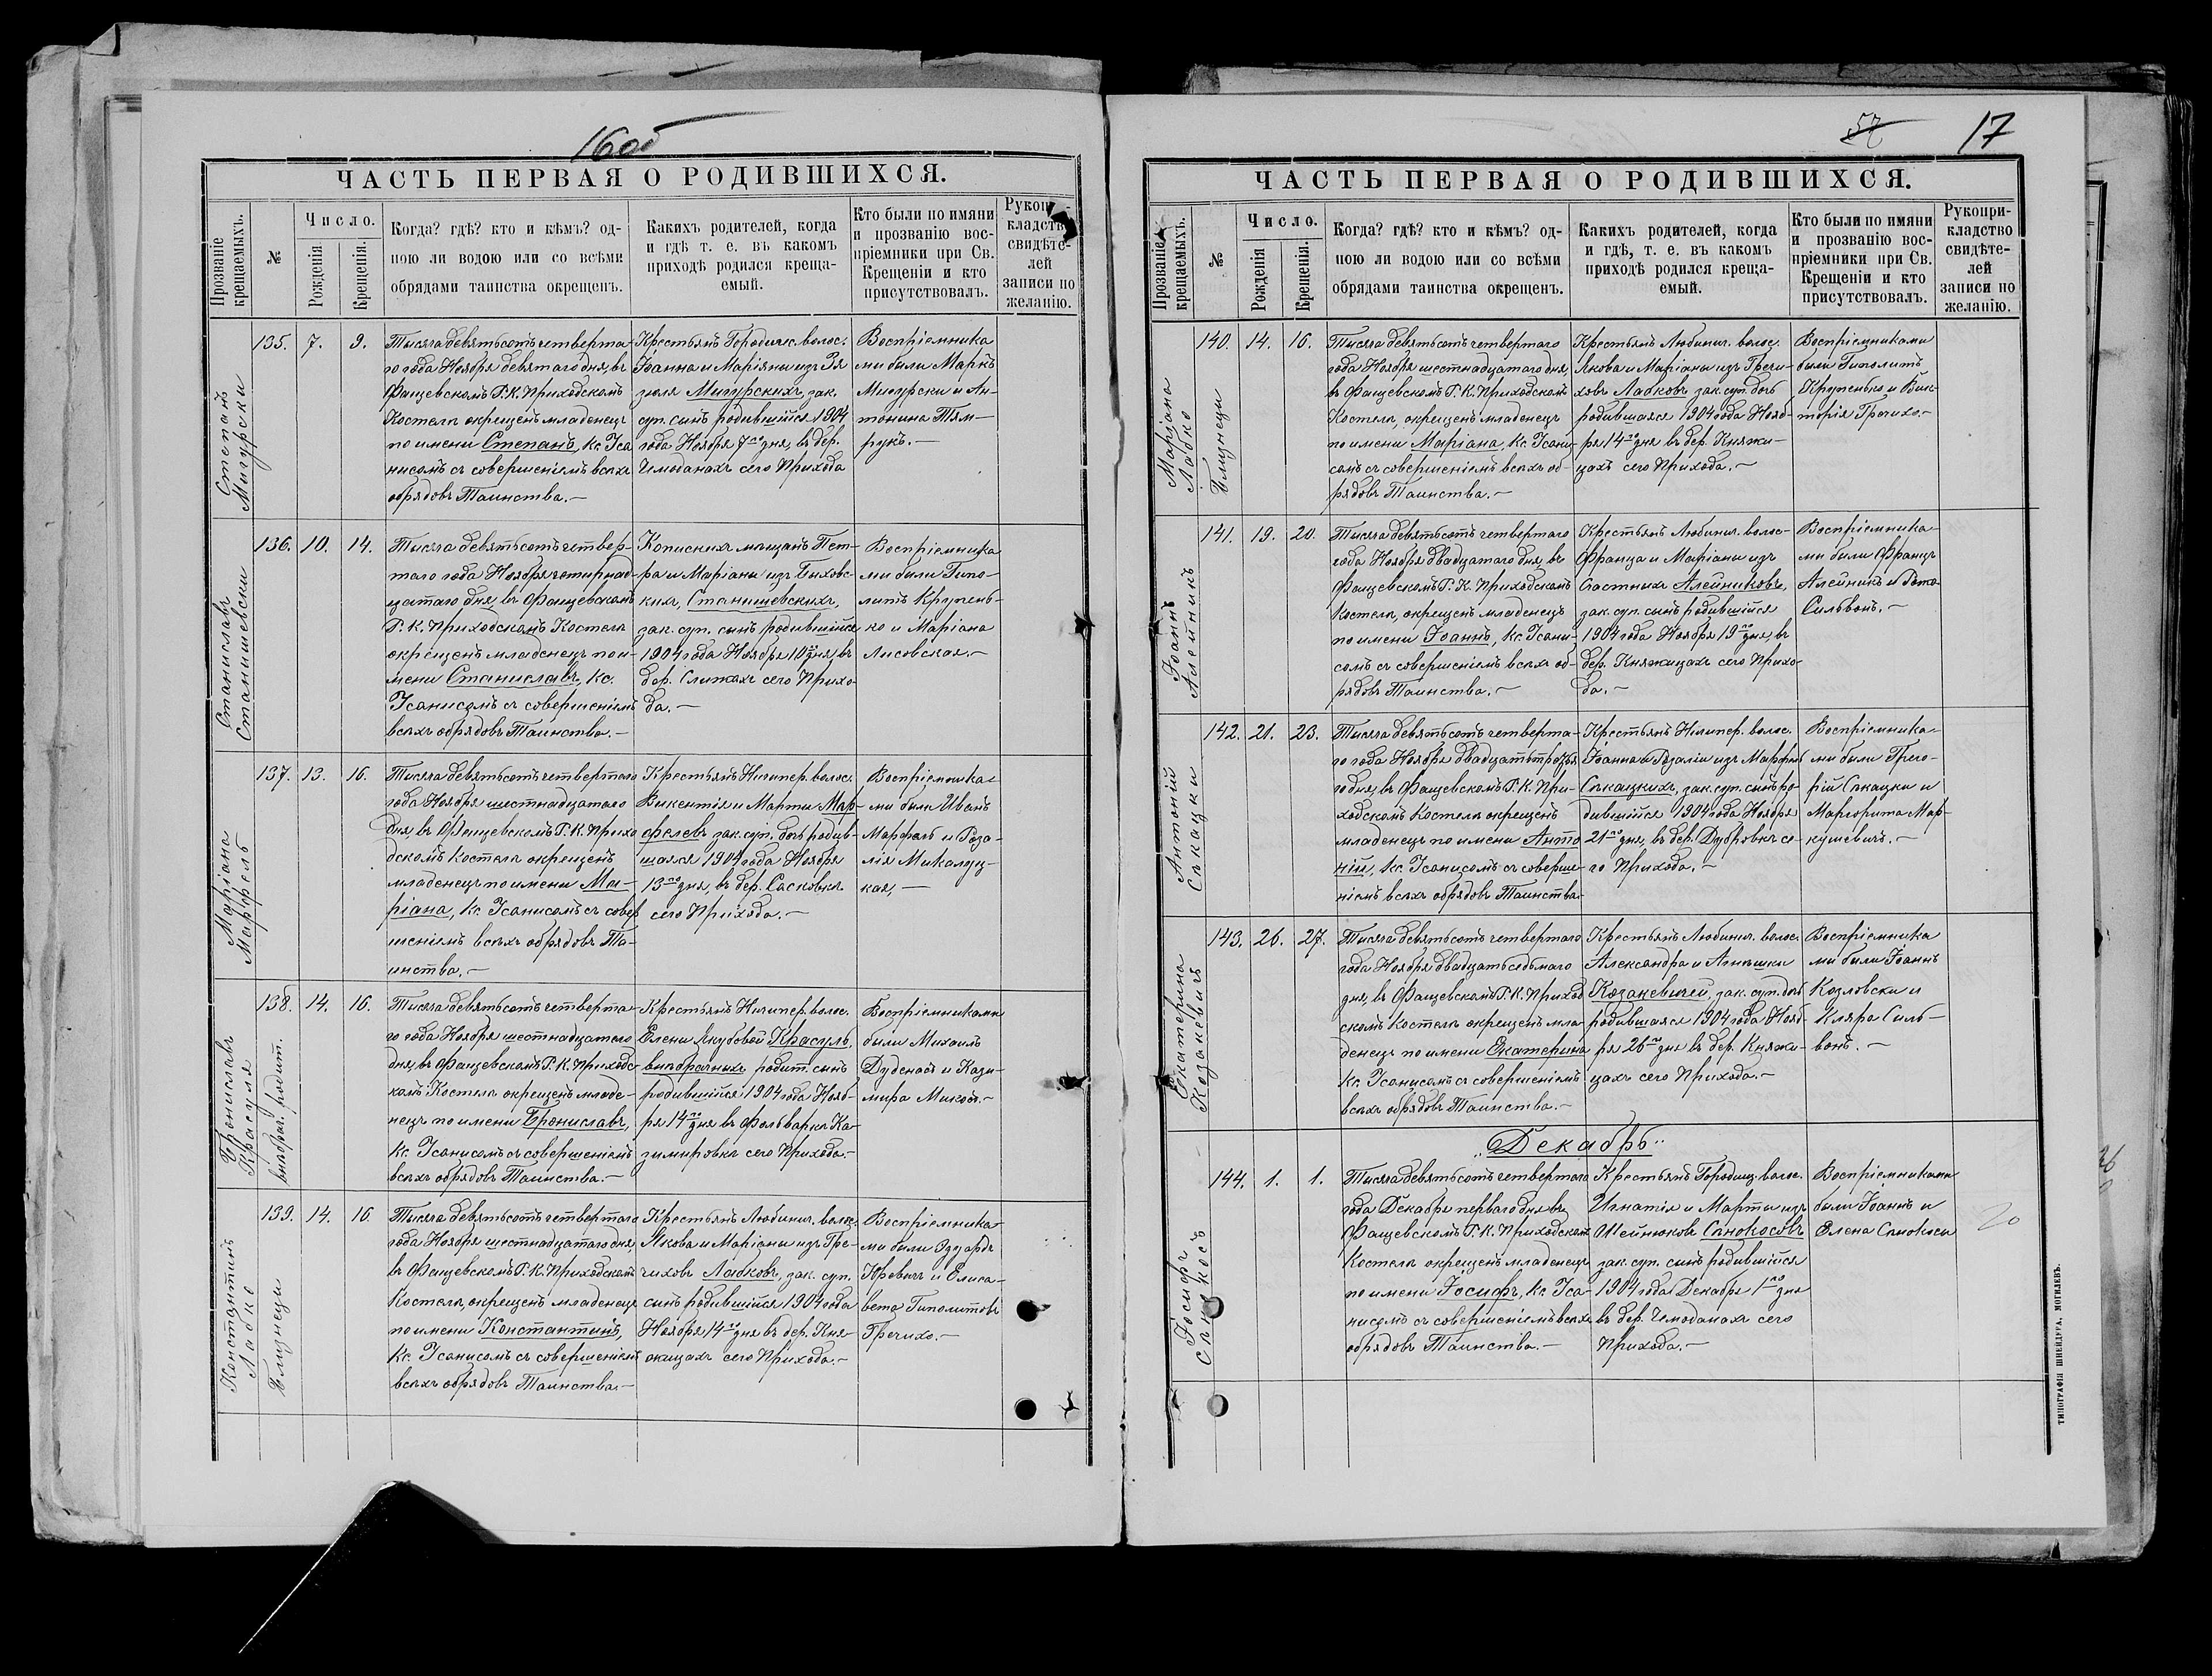 16 об
ЧАСТЬ ПЕРВАЯ О РОДИВШИХСЯ.
Прозваніе крещаемыхъ.
№
Число.
Рожденія
Крещенія.
Когда? гдѣ? кто и кѣмъ? од-
ною ли водою или со всѣми
обрядами таинства окрещенъ.
Какихъ родителей, когда
и гдѣ т. е. въ какомъ
приходѣ родился креща-
емый.
Кто были по имяни
и прозванію вос-
пріемники при Св.
Крещеніи и кто
присутствовалъ.
кладство
свидѣте-
лей
записи по
желанію.
Степанъ
Мигурски
135. 7. 9.
Тысяча девятьсотъ четверта-
го года Ноября девятаго дня, въ
Фащевскомъ Р. К. Приходскомъ
Костелѣ окрещенъ младенецъ
по имени Степанъ, Кс. Іса
нисомъ съ совершеніемъ всѣхъ
обрядовъ Таинства.—
Крестьянъ Городищ. волос.
Іоанна и Маріяны изъ Зя
Мигурскихъ, зак.
суп. сынъ родившійся 1904
года Ноября 7го дня, въ дер.
Чемоданахъ сего Прихода
Воспріемника
ми были Маркъ
Мигурски и Ан-
тонина Тям-
рукъ.—
Станиславъ
Станишевски
136. 10. 14.
Тысяча девятьсотъ четвер-
таго года Ноября четырнад-
цатаго дня, въ Фащевскомъ
Р. К. Приходскомъ Костелѣ
окрещенъ младенецъ по и-
мени Станиславъ, Кс.
Ісанисомъ съ совершеніемъ
всѣхъ обрядовъ Таинства.—
Копыскихъ мѣщанъ Пет-
ра и Маріаны изъ Быховс-
кихъ, Станишевскихъ,
зак. суп. сынъ родившійся
1904 года Ноября 10го дня, въ
дер. Слижахъ сего Прихо
да.—
Воспріемника
ми были Гипо-
литъ Крупень-
ко и Маріана
Лисовская.—
Маріана
Марфель
137. 13. 16.
Тысяча девятьсотъ четвертаго
года Ноября шестнадцатаго
дня, въ Фащевскомъ Р. К. Прихо
дскомъ Костелѣ окрещенъ
младенецъ по имени Ма-
ріана, Кс. Ісанисомъ съ совер
шеніемъ всѣхъ обрядовъ Та-
инства.—
Крестьянъ Ничипер. волос.
Викентія и Марты Мар-
фелевъ зак. суп. дочь родив-
шаяся 1904 года Ноября
13го дня, въ дер. Сасковкѣ
сего Прихода.—
Воспріемника-
ми были Иванъ
Марфель и Роза-
лія Микалуц-
кая,—
Брониславъ
Красуля
внѣбрач. родит.
138. 14. 16.
Тысяча девятьсотъ четверта-
го года Ноября шестнадцатаго
дня, въ Фащевскомъ Р. К. Приходс-
комъ Костелѣ окрещенъ младе-
нецъ по имени Брониславъ,
Кс. Ісанисомъ съ совершеніемъ
всѣхъ обрядовъ Таинства.—
Крестьянъ Ничипер. волос.
Елены Якубовой Красуль,
внѣбрачныхъ родит. сынъ
родившійся 1904 года Нояб-
ря 14го дня въ фольваркѣ Ка-
зимировкѣ сего Прихода.—
Воспріемниками
были Михаилъ
и Кази-
мира
Константинъ
Лабко
Близнецы
139. 14. 16
Тысяча девятьсотъ четвертаго
года Ноября шестнадцатаго дня,
въ Фащевскомъ Р. К. Приходскомъ
Костелѣ, окрещенъ младенецъ
по имени Константинъ,
Кс. Ісанисомъ съ совершеніемъ
всѣхъ обрядовъ Таинства.—
Крестьянъ Любинич. волос.
Якова и Маріаны изъ Гре-
чиховъ Лабковъ, зак. суп.
сынъ родившійся 1904 года
Ноября 14го дня въ дер. Кня-
жицахъ сего Прихода.—
Воспріемника-
ми были Эдуардъ
Юревичъ и Елиса-
вета Гиполитовъ
Гречихо.—
57
17
ЧАСТЬ ПЕРВАЯ О РОДИВШИХСЯ.
Прозваніе крещаемыхъ.
№
Число.
Рожденія
Крещенія.
Когда? гдѣ? кто и кѣмъ? од-
ною ли водою или со всѣми
обрядами таинства окрещен.
Какихъ родителей, когда
и гдѣ, т. е. въ какомъ
приходѣ родился креща-
емый.
Кто были по имяни
и прозванію вос-
пріемники при Св.
Крещеніи и кто
присутствовалъ.
Рукопри-
кладство
свидѣте-
лей
записи по
желанію.
Маріана
Лабко
Близнецы
140. 14. 16.
Тысяча девятьсотъ четвертаго
года Ноября шестнадцатаго дня,
въ Фащевскомъ Р. К. Приходскомъ
Костелѣ, окрещенъ младенецъ
по имени Маріана, Кс. Ісани-
сомъ съ совершеніемъ всѣхъ об-
рядовъ Таинства.—
Крестьянъ Любинич. волос.
Якова и Маріаны изъ Гречи-
ховъ Лабковъ, зак. суп. дочь
родившаяся 1904 года Нояб-
ря 14го дня въ дер. Княжи-
цахъ сего Прихода.—
Воспріемниками
были Гиполитъ
Крупенько и Вик-
торія Гречихо.—
Іоаннъ
Алейникъ
141. 19. 20.
Тысяча девятьсотъ четвертаго
года Ноября двадцатаго дня, въ
Фащевскомъ Р. К. Приходскомъ
Костелѣ, окрещенъ младенецъ
по имени Іоаннъ, Кс. Ісани-
сомъ съ совершеніемъ всѣхъ об-
рядовъ Таинства.—
Крестьянъ Любинич. волос-
Франца и Маріаны изъ
Счастныхъ Алейниковъ,
зак. суп. сынъ родившійся
1904 года Ноября 19го дня, въ
дер. Княжицахъ сего Прихо-
да.—
Воспріемника-
ми были Францъ
Алейникъ и
Сильвонъ.—
Антоній
Сѣкацки
142. 21. 23.
Тысяча девятьсотъ четверта-
го года Ноября двадцать третья
го дня, въ Фащевскомъ Р. К. При-
ходскомъ Костелѣ окрещенъ
младенецъ по имени Анто
ній, Кс. Ісанисомъ съ соверше-
ніемъ всѣхъ обрядовъ Таинства.
Крестьянъ Ничипер. волос.
Іоанна и Розаліи изъ Марфель
Сѣкацкихъ, зак. суп. сынъ ро-
дившійся 1904 года Ноября
21го дня, въ дер. Дубровкѣ се-
го Прихода.—
Воспріемника-
ми были Григо-
рій Сѣкацки и
Маргорита Мар-
кушевичъ.—
Екатерина
Козакевичъ
143. 26. 27.
Тысяча девятьсотъ четвертаго
года Ноября двадцать седьмаго
дня, въ Фащевскомъ Р. К. Приход
скомъ Костелѣ окрещенъ мла
денецъ по имени Екатерина
Кс. Ісанисомъ съ совершеніемъ
всѣхъ обрядовъ Таинства.—
Крестьянъ Любинич. волос.
Александра и Агнѣшки
Козакевичей, зак. суп. дочь
родившаяся 1904 года Нояб-
ря 26го дня въ дер. Княжи-
цахъ сего Прихода.—
Воспріемника
ми были Іоаннъ
Козловски и
Кляра Силь-
вонъ.—
„Декабрь"
Іосифъ
Сѣнокосъ
144. 1. 1.
Тысяча девятьсотъ четвертаго
года Декабря перваго дня въ
Фащевскомъ Р. К. Приходскомъ
Костелѣ окрещенъ младенецъ
по имени Іосифъ, Кс. Іса-
нисомъ съ совершеніемъ всѣхъ
обрядовъ Таинства.—
Крестьянъ Городищ. волос.
Игнатія и Марты изъ
Шейнюковъ Сѣнокосовъ
зак. суп. сынъ родившійся
1904 года Декабря 1го дня
въ дер. Чемоданахъ сего
Прихода.—
Воспріемниками
были Іоаннъ и
Елена Сѣнокосы
20
ТИПОГРАФІЯ ШНЕЙДЕРА, МОГИЛЕВЪ.